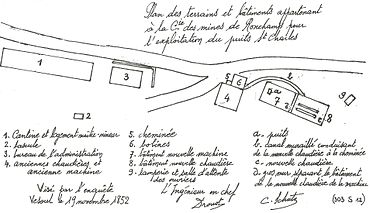 Plan des terrains et bâtiments appartenant
à la Cie des mines de Ronchamp pour
l'exploitation du puits St Charles
1
2
3
4
5
6
7
8
9
a
b
c
d
1. Cantine et logement maître mineur
2. bascule
3. bureau de l'administration
4. anciennes chaudières et
ancienne machine
5. cheminée
6. bobines
7. bâtiment nouvelle machine
8. bâtiment nouvelle chaudière
9. lampisterie et salle d'attente
des mineurs
a. puits
b. canal muraillé conduisant
de la nouvelle chaudière à la cheminée
c. nouvelle chaudière
d. gros mur séparant le bâtiment de
la nouvelle chaudière de la machine
Visé par l'enquête
Vesoul le 19 novembre 1852
L'Ingénieur en chef
Drouot
C. Schutz
(303 S 12)